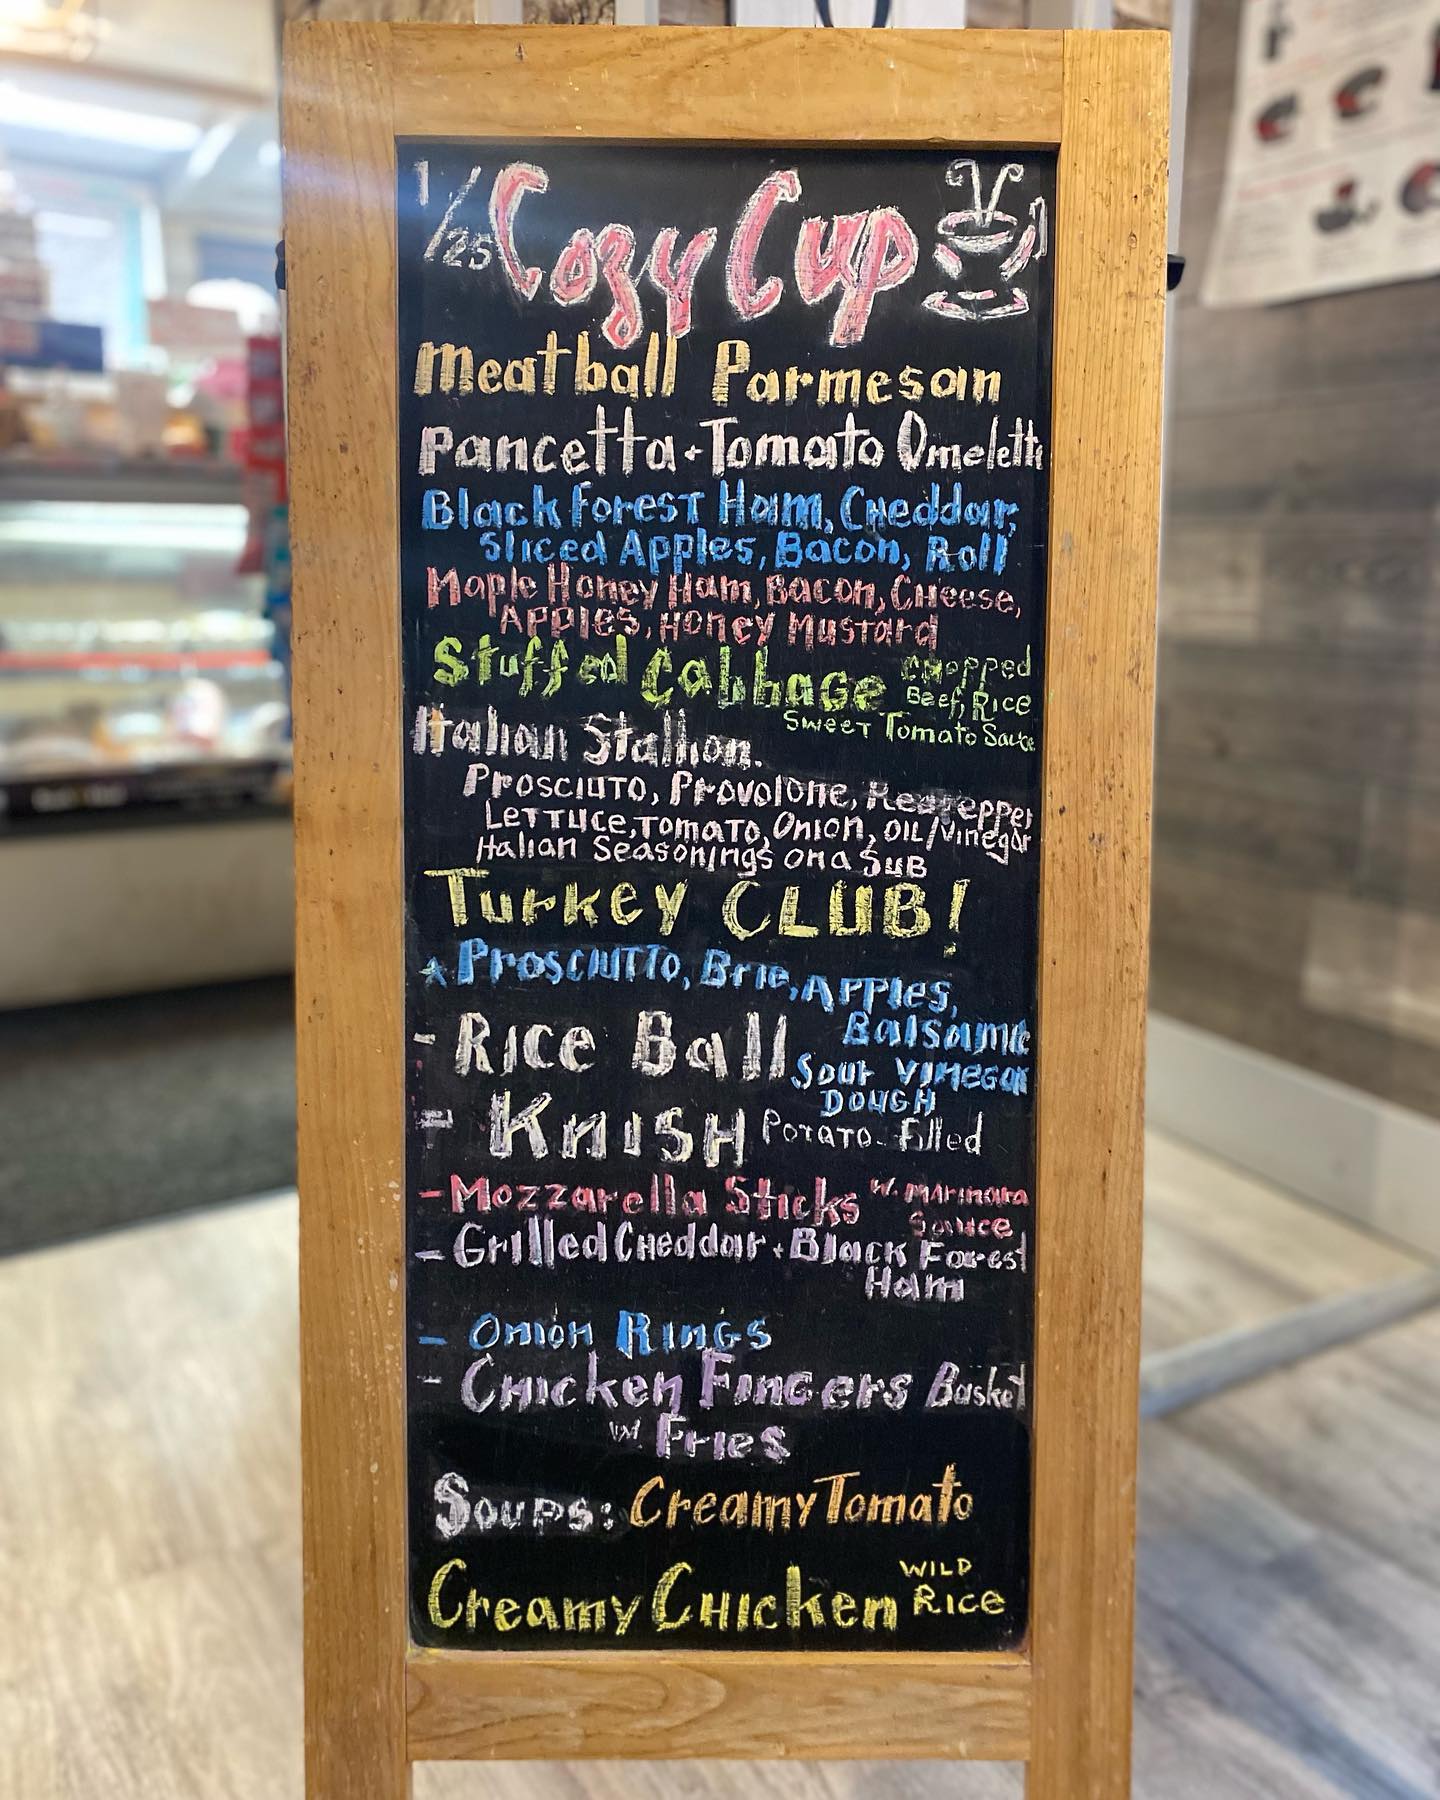 1/25 Cozy Cup
Meatball Parmesan
Pancetta + Tomato Omelette
Black Forest Ham, Cheddar,
Sliced Apples, Bacon, Roll
Maple Honey Ham, Bacon, Cheese,
Apples, Honey Mustard
Stuffed Cabbage Chopped
Beef, Rice
Sweet Tomato Sauce
Italian Stallion.
Prosciuto, Provolone, Red Pepper
Lettuce, Tomato, Onion, Oil/Vinegar
Italian Seasonings on a Sub
Turkey CLUB!
Prosciutto, Brie, Apples,
Balsamic
Vinegar
Sour
Dough
- Rice Ball
- Knish Potato-Filled
- Mozzarella Sticks W. Marinara
Sauce
- Grilled Cheddar + Black Forest
Ham
- Onion Rings
- Chicken Fingers Basket
w/ Fries
Soups: Creamy Tomato
Creamy Chicken Wild
Rice